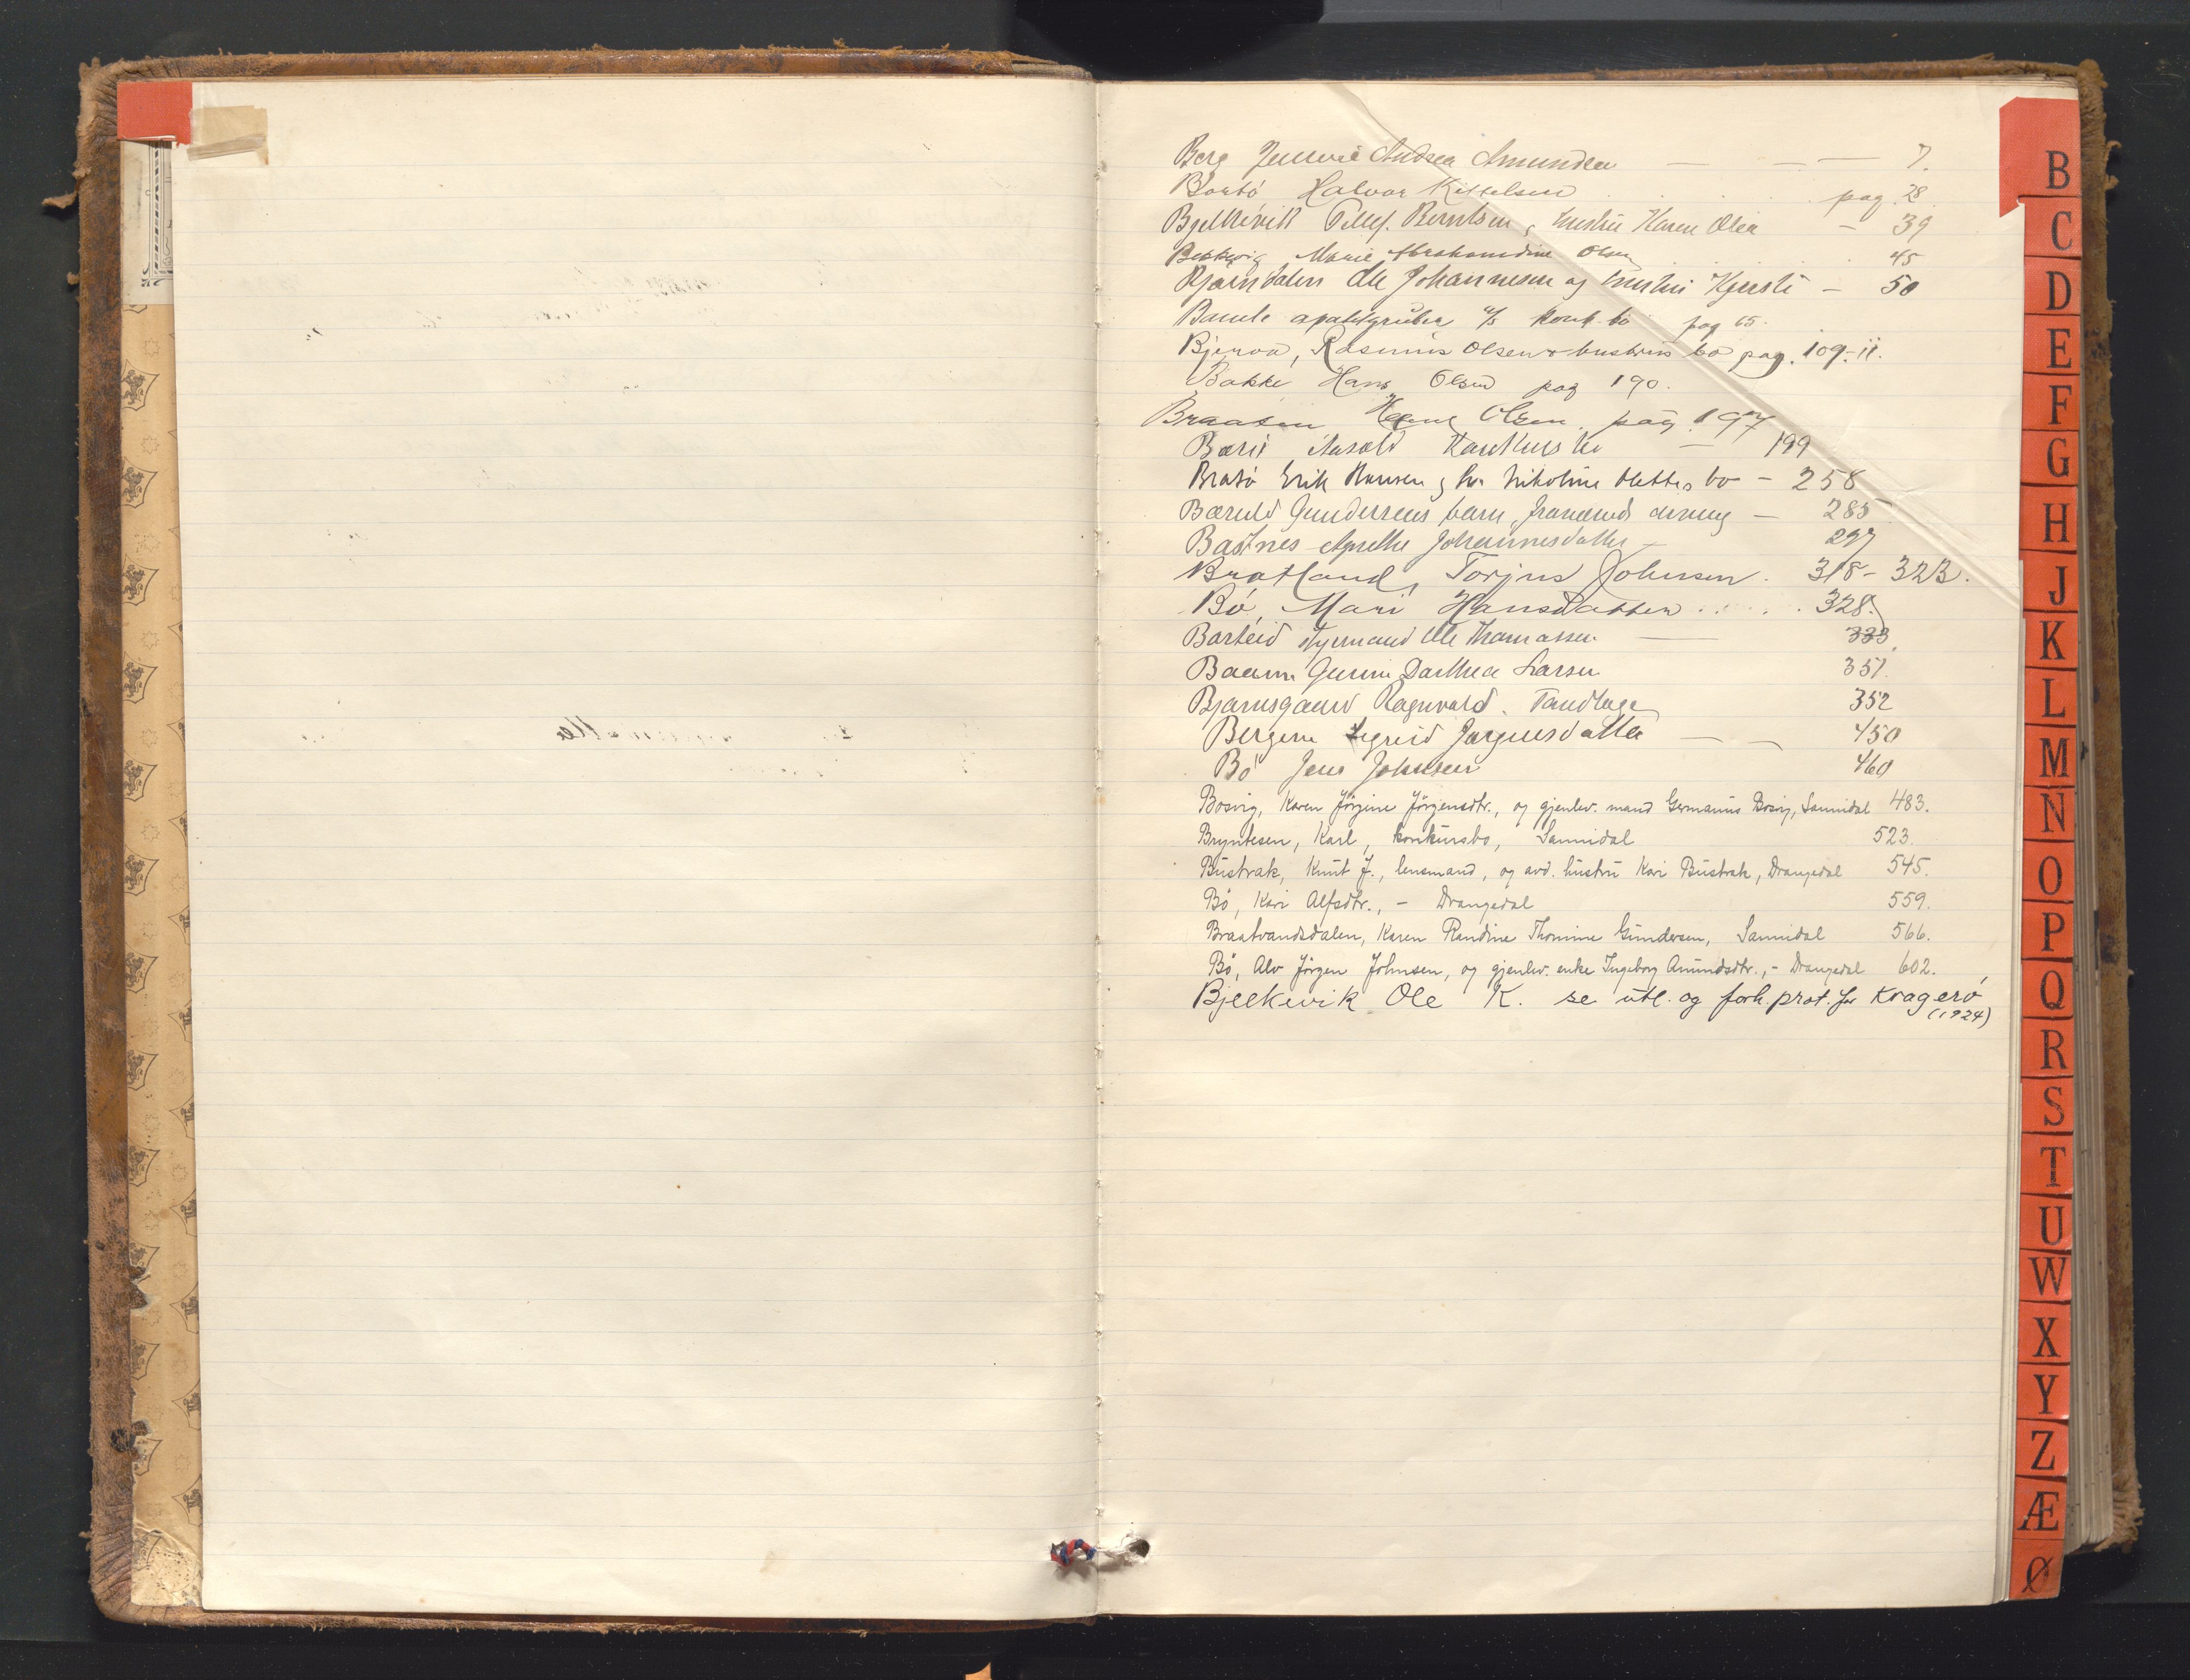 Berg Andrea Amundsen — — — 7.
Halvor Kittelsen pag. 28
Bjelkevik Tellef. Berntsen, hustru Karen Olea — 39
Marie Abrahamdine Olsen 45
Bjørndalen Ole Johannesen og hustru Kjersti — 50
Bamle apatitgruber a/s konk. bo pag 65.
Rasmus Olsen & hustrus bo pag. 109.-11.
Bakke Hans Olsen pag 190.
Braaten Olsen. pag. 197
Konkurs bo — 199
Bratø Erik Hansen Nikoline bo — 258
Gundersens barn, — 285
Johannesdatter — 297
Bratland, Torjus Johnsen. 318-323.
Bö, Mari Hansdatter . . . . 328.
Barteid styrmand Ole Thomassen — 333.
Gurine Darthea Larsen 351.
Ragnvald. Tandlæge 352
Bergene Sigrid Jørgensdatter — — 450
Bö Jens Johnsen 460
Bosvig, Karen Jörgine Jörgensdtr., og gjenlev. mand Germanus Bosvig, Sannidal 483.
Bryntesen, Karl, konkursbo, Sannidal 523.
Bustrak, Knut J., lensmand, og avd. hustru Kari Bustrak, Drangedal 545.
Bö, Kari Alfsdtr., - Drangedal 559.
Braatvandsdalen, Karen Randine Thomine Gundersen, Sannidal 566.
Bö, Alv Jörgen Johnsen, og gjenlev. enke Ingeborg Amundsdtr., - Drangedal 602.
Bjelkevik Ole K. se utl. og forh. prot. for Kragerö
(1924)
B
C
D
E
F
G
H
J
K
L
M
N
O
P
Q
R
S
T
U
W
X
Y
Z
Æ
Ø